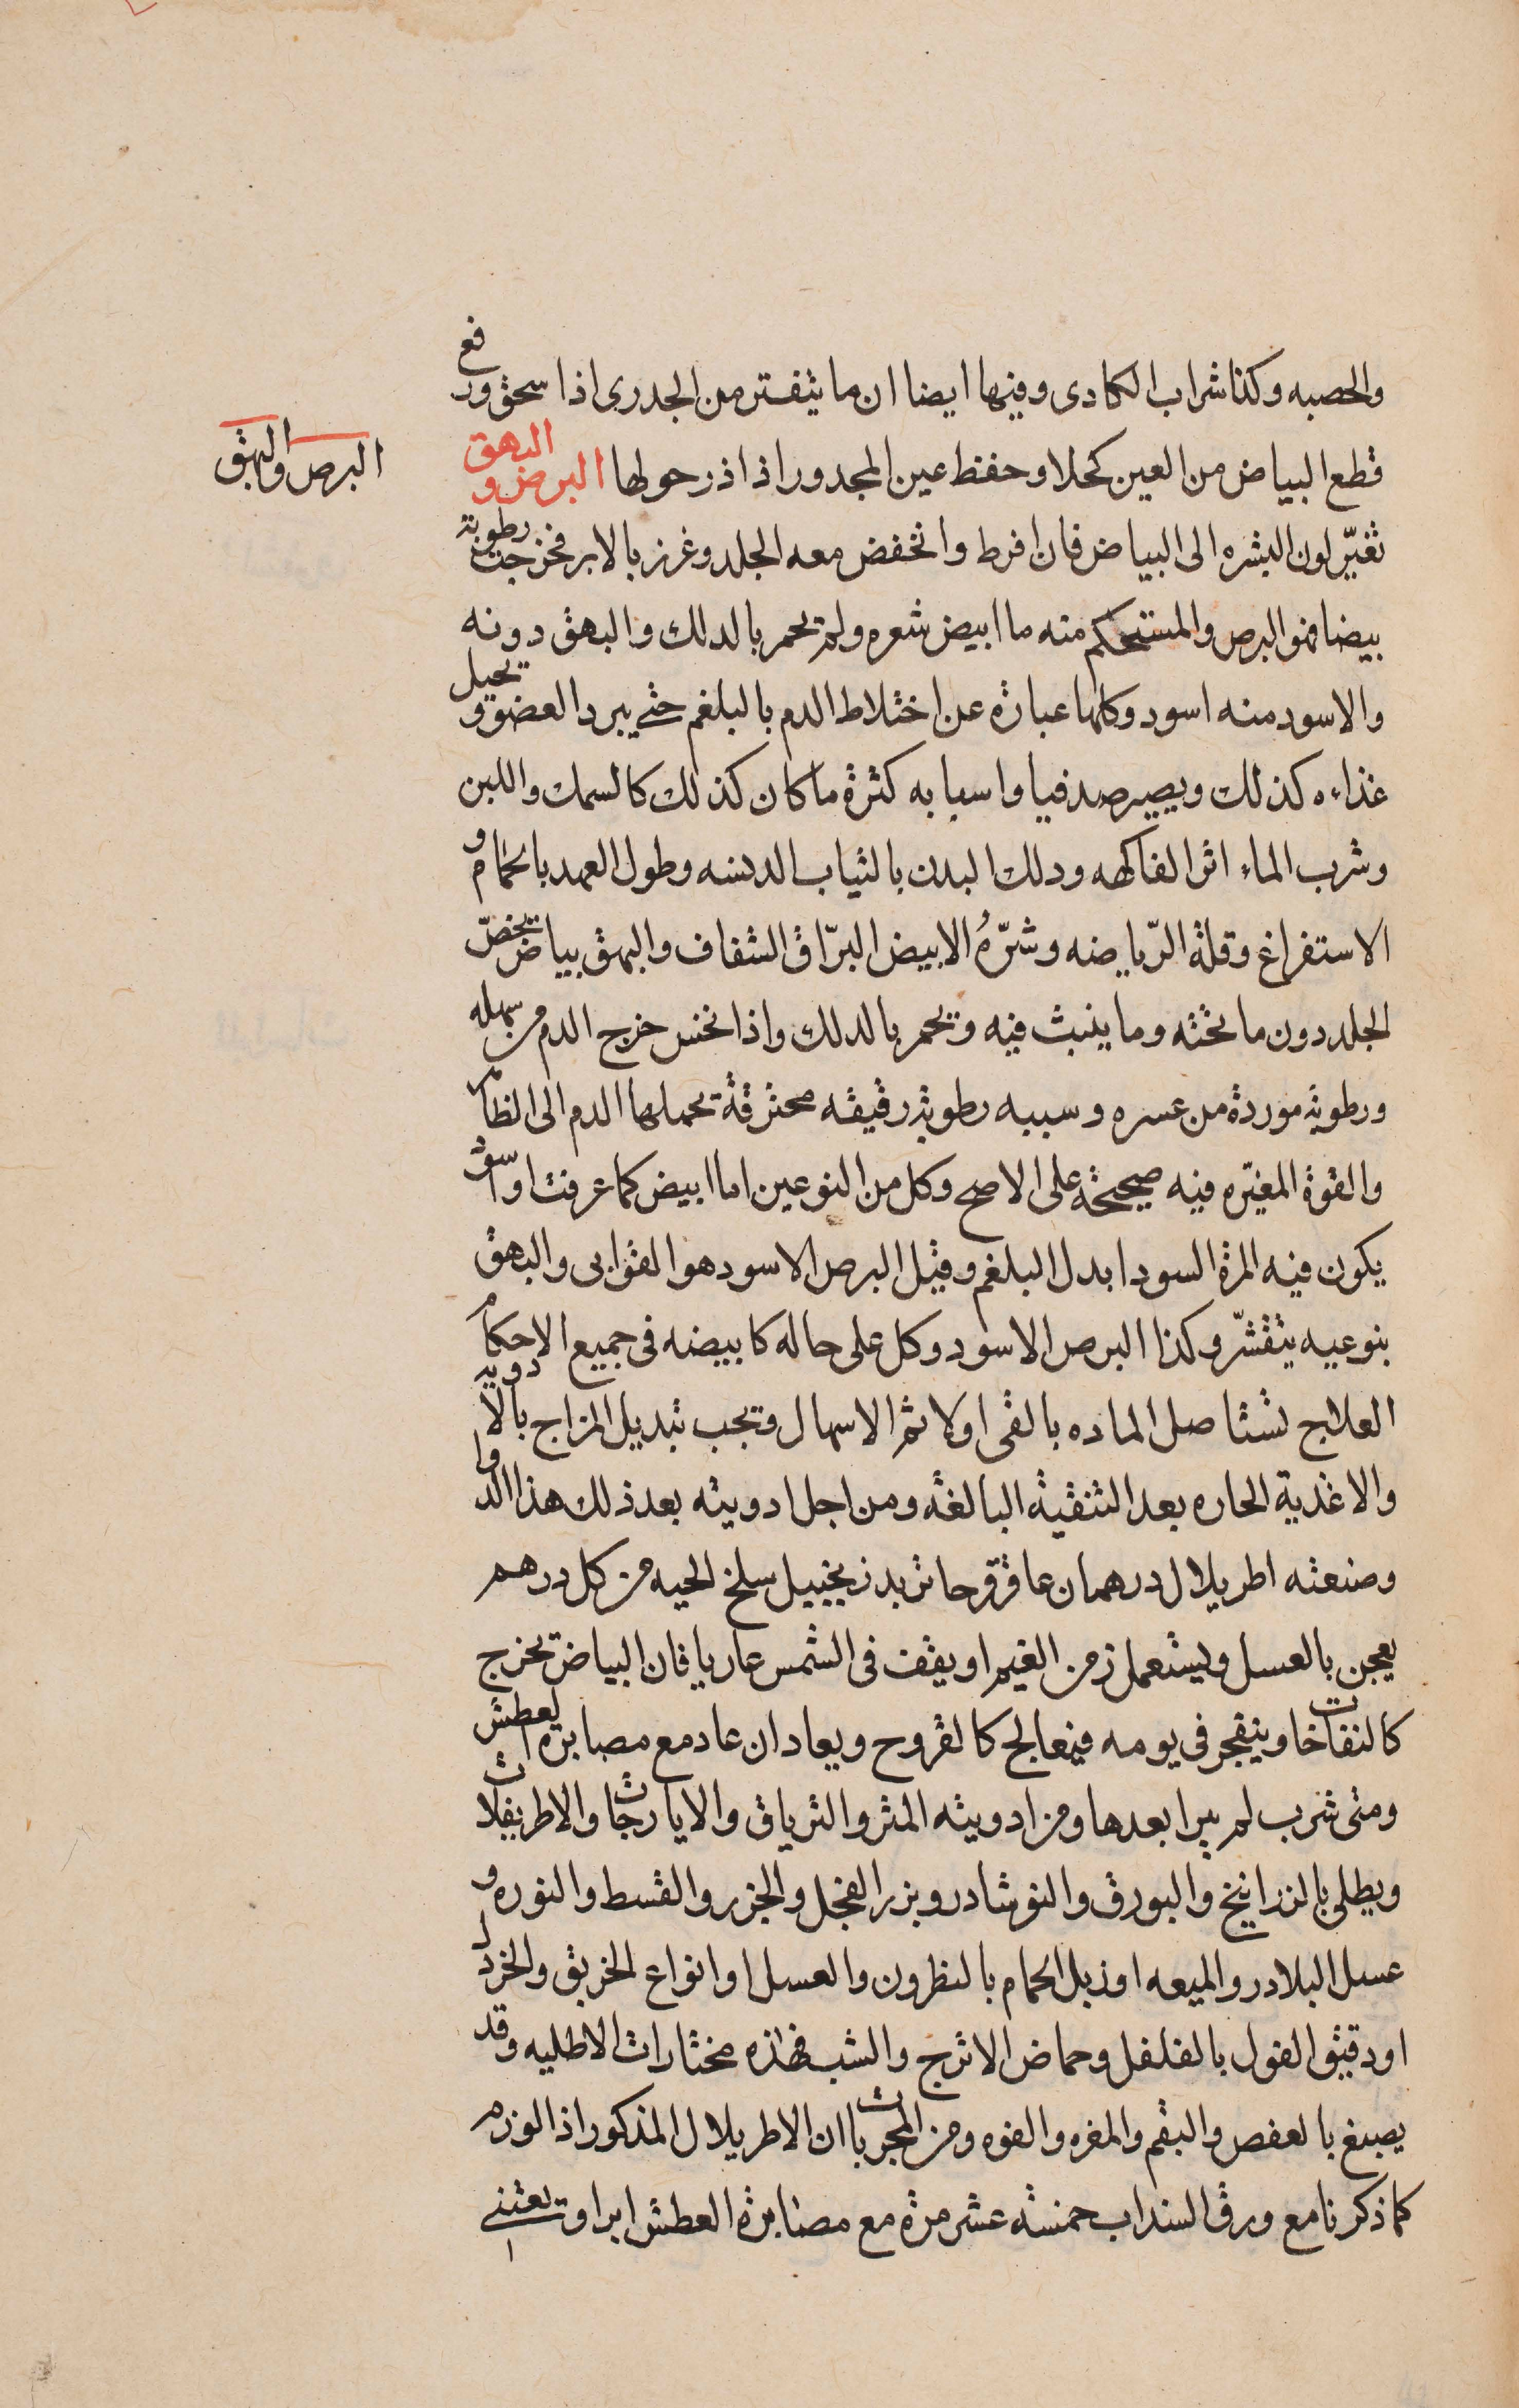 والحصبه وكذا شراب الكادى وفيها ايضا ان ما يتقشر من الجدرى اذا سحق ورفع
قطع البياض من العين كحلا وحفظ عين المجدور اذا ذر حولها البرص والبهق
البرص والبهق
تغيّر لون البشره الى البياض فان افرط وانخفض معه الجلد وغرز بالابر فخرجت رطوبة
بيضا فهو البرص والمستحكم منه ما ابيض شعره ولم يحمر بالدلك والبهق دونه
والاسود منه اسود وكلها عبارة عن اختلاط الدم بالبلغم حتى يبرد العضو ويحيل
غذاءه كذلك ويصير صدفيا واسبابه كثرة ما كان كذلك كالسمك واللبن
وشرب الماء اثر الفاكهه ودلك البدن بالثياب الدنسه وطول العهد بالحمام و
الاستفراغ وقلة الرّياضه وشرّهُ الابيض البرّاق الشفاف والبهق بياض يخصّ
الجلد دون ما تحته وما ينبت فيه ويحمر بالدلك واذا نخس خرج الدم من سهله
ورطوبة موردة من عسره وسببه رطوبة رقيقه محترقة يحملها الدم الى الظاهر
والقوة المغيّره فيه صحيحة على الاصح وكل من النوعين اما ابيض كما عرفت او اسود
يكون فيه المرة السودا بدل البلغم وقيل البرص الاسود هو القوابى والبهق
بنوعيه يتقشّر وكذا البرص الاسود وكل على حاله كابيضه فى جميع الاحكام
العلاج تستاصل الماده بالقى اولا ثم الاسهال ويجب تبديل المزاج بالادوية
والاغذية الحاره بعد التنقية البالغة ومن اجل ادويته بعد ذلك هذا الدوا
وصنعته اطريلال درهمان عاقرقرحا تربد زنجبيل سلخ الحيه من كل درهم
يعجن بالعسل ويستعمل زمن الغيم او يقف فى الشمس عاريا فان البياض يخرج
كالنفاخات وينفجر فى يومه فيعالج كالقروح ويعاد ان عاد مع مصابرة العطش
ومتى شرب لم يبرا بعدها ومن ادويته المثر والترياق والايارجات والاطريفلات
ويطلى بالزرانيخ والبورق والنوشادر وبزر الفجل والجزر والقسط والنوره و
عسل البلادر والميعه او زبل الحمام بالنطرون والعسل او انواع الخربق والخردل
او دقيق الفول بالفلفل وحماض الاترج والشب فهذه مختارات الاطليه وقد
يصبغ بالعفص والبقم والمغره والفوه ومن المجربات ان الاطريلال المذكور اذا لوزم
كما ذكرنا مع ورق السنداب خمسة عشر مرة مع مصابرة العطش ابرا ويعتنى